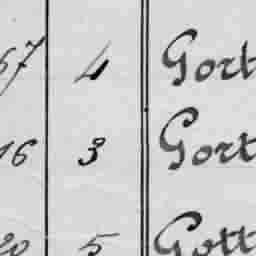 57 4 Gort
16 3 Gort
20 5 Gott